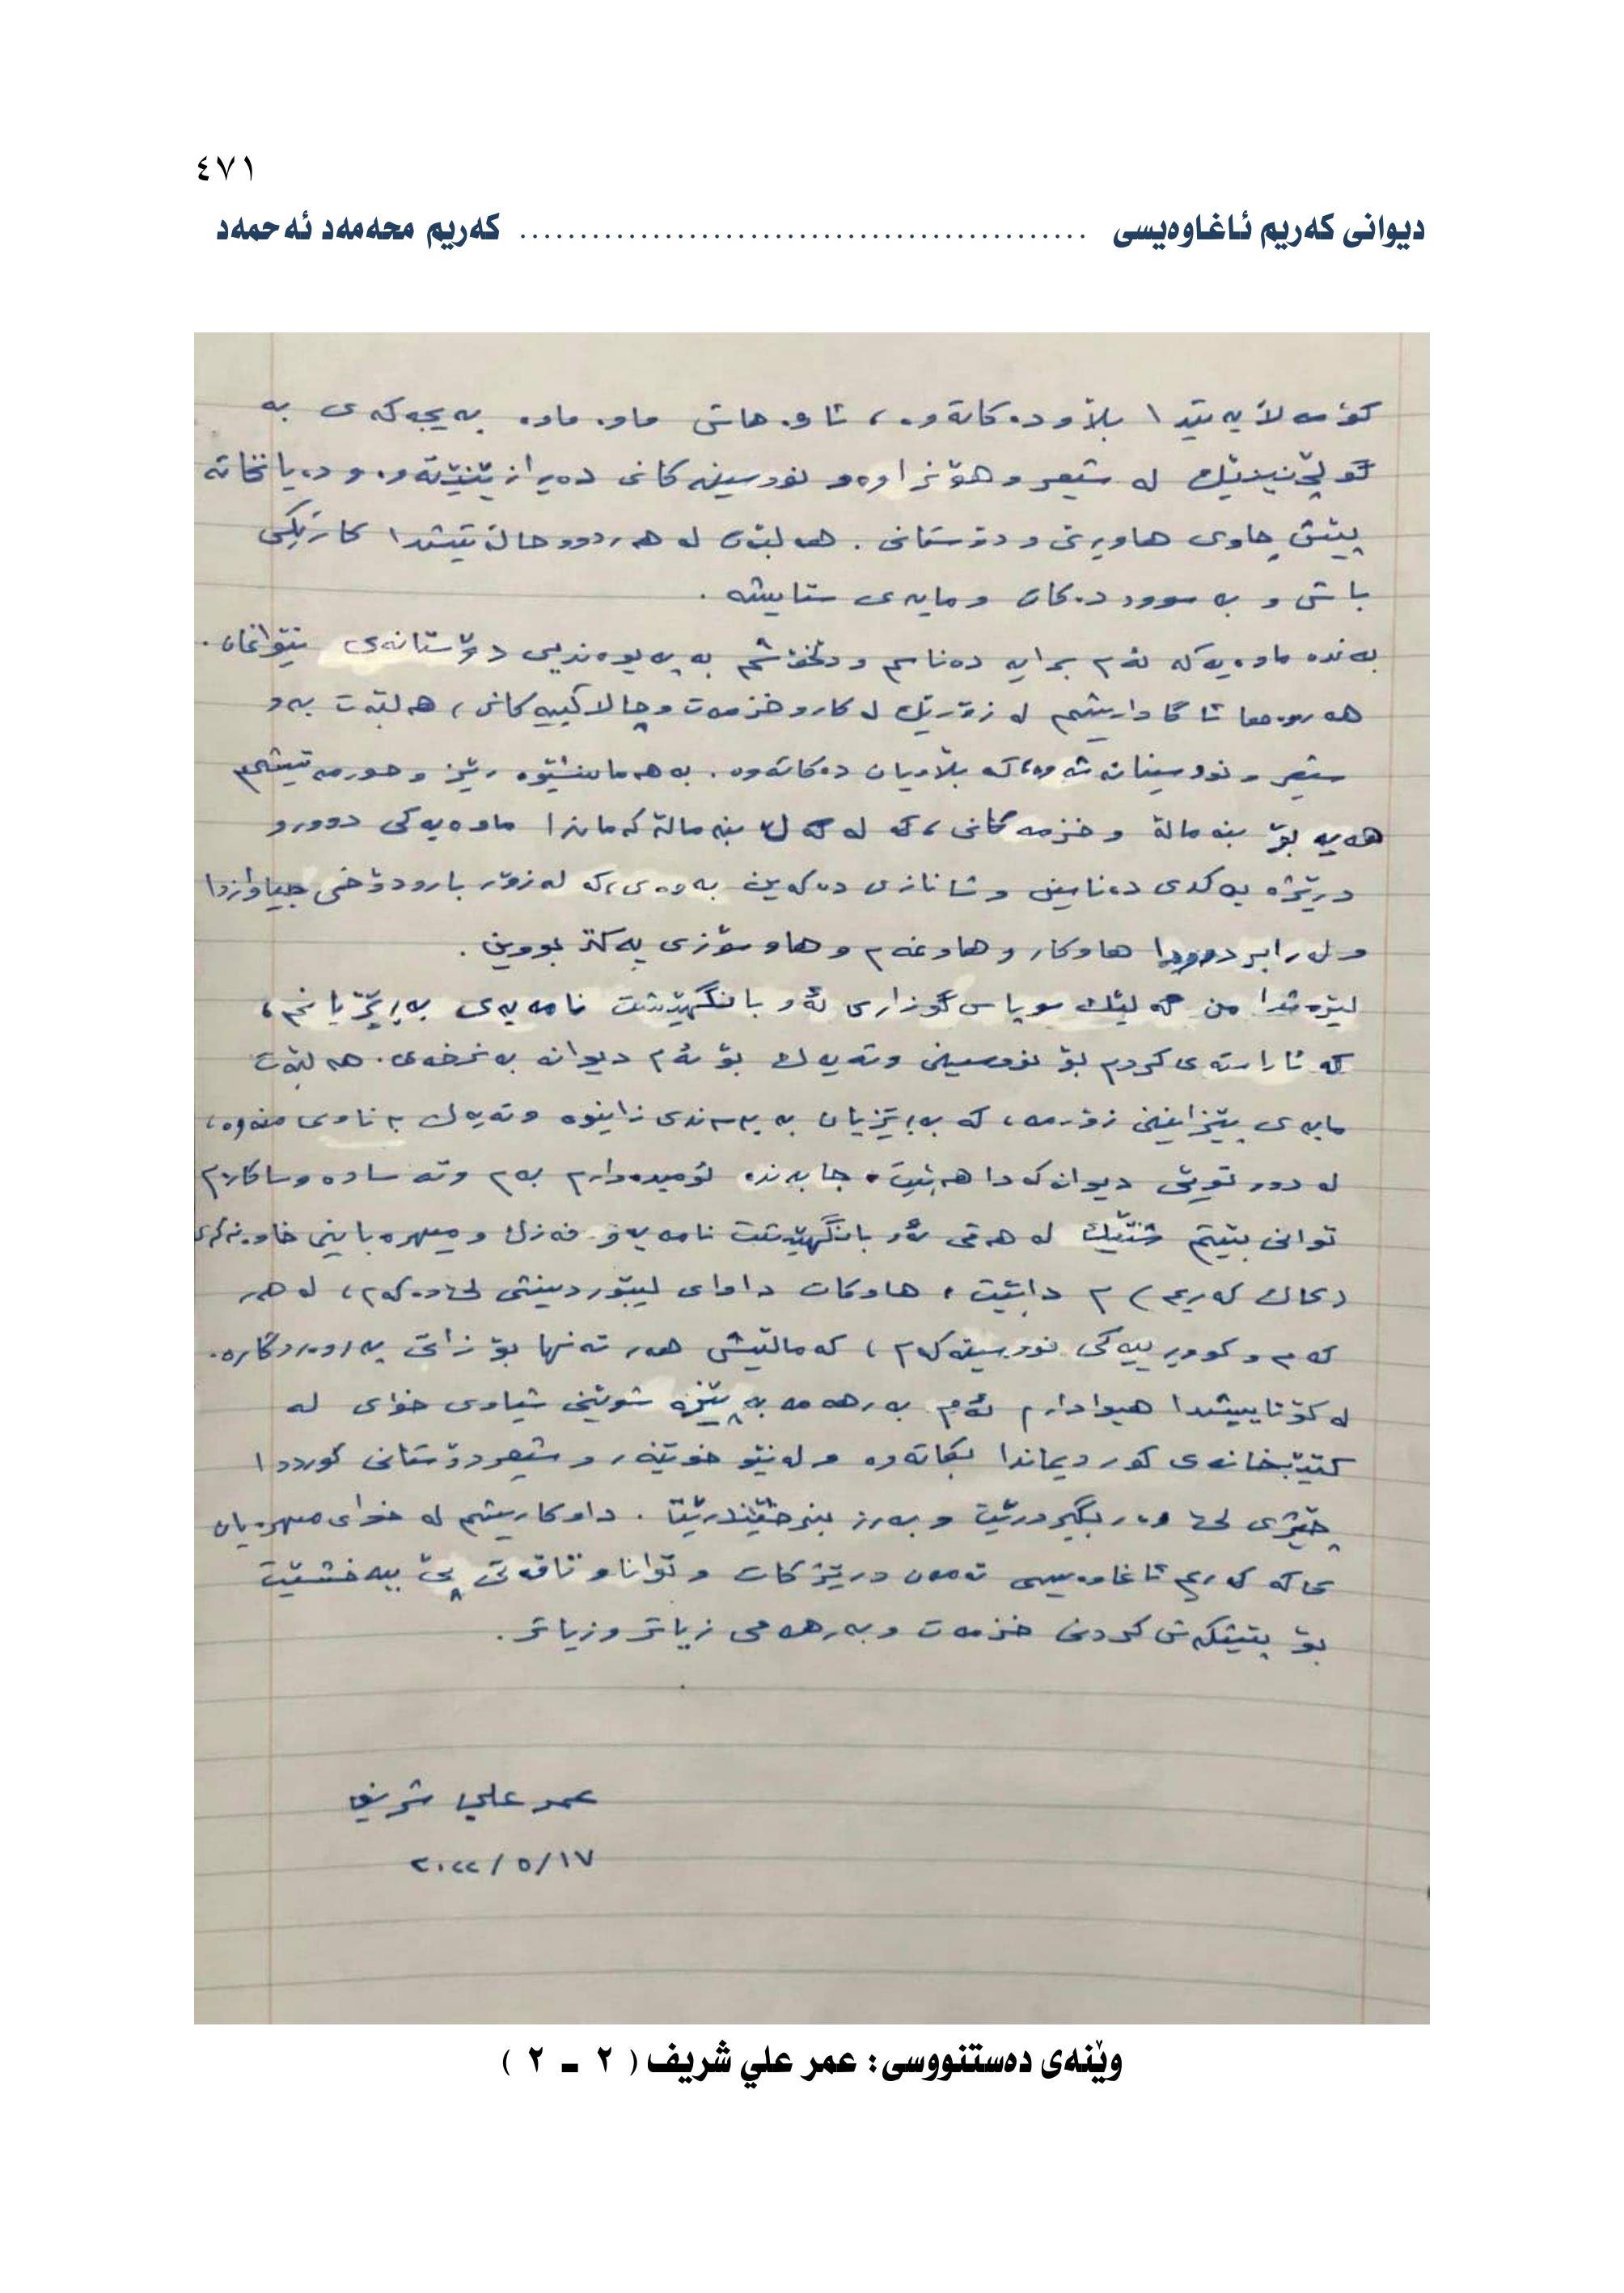 ٤٧١
دیوانی کەریم ئاغاوەیسی ............................................... کەریم محەمەد ئەحمەد
کۆمەلآیەتیدا بلآودەکاتەوە، ئاوەهاش ماوە ماوە بە پەی بە
گوڵچنینێک لە شیعر و هۆنراوەو نووسینەکانی دەیرازێنێتەوە و دەیانخاتە
پێش چاوی هاوڕێ و دۆستانی. هەڵبەت لە هەردوو حاڵەتیشدا کارێکی
باش و بە سوود دەکات و مایەی ستایشە.
بەندە ماوەیەکە ئەم برایە دەناسم و دڵخۆشم بە پەیوەندیی دۆستانەی نێوانمان.
هەروەها ئاگاداریشم لە زۆرێک لە کارو خزمەت و چالاکییەکانی، هەڵبەت بەو
شیعر و نووسینانەشەوە، کە بلآویان دەکاتەوە. بە هەمان شێوە ڕێز و حورمەتیشم
هەیە بۆ بنەماڵە و خزمەکانی، کە لەگەڵ بنەماڵەکەماندا ماوەیەکی دوورو
درێژە یەکدی دەناسین و شانازی دەکەین بەوەی، کە لە زۆر بارودۆخی جیاوازدا
و لە ڕابردوودا هاوکار و هاوغەم و هاوسۆزی یەکتر بووین.
لێرەشدا من گەلێک سوپاس گوزاری ئەو بانگهێشت نامەیەی بەڕێزیانم،
کە ئاراستەی کردم بۆ نووسینی وتەیەک بۆ ئەم دیوانە بەنرخەی. هەڵبەت
مایەی پێزانینی زۆرمە، کە بەڕێزیان بە پەسەندی زانیوە وتەیەک بە ناوی منەوە،
لە دوو توێی دیوانەکەدا هەبێت. جا بەندە ئومیدەوارم بەم وتە سادە و ساکارەم
توانی بێتم شتێک لە هەقی ئەو بانگهێشت نامەیە و فەزڵ و میهرەبانیی خاوەنەکەی
(کاک کەریم) م دابێت، هاوکات داوای لێبووردنیشی لێ دەکەم، لە هەر
کەم و کووڕییەکی نووسینەکەم، کەماڵیش هەر تەنها بۆ زاتی پەروەردگارە.
لە کۆتاییشدا هیوادارم ئەم بەرهەمە بەپێزە شوێنی شیاوی خۆی لە
کتێبخانەی کوردیماندا بکاتەوە و لەنێو خوێنەر و شیعردۆستانی کورددا
چێژی لێ وەربگیردرێت و بەرز بنرخێندرێت. داوکاریشم لە خوای میهرەبان
کاکە کەریم ئاغاوەیسی تەمەن درێژ کات و توانا و تاقەتی پێ ببەخشێت
بۆ پێشکەش کردنی خزمەت و بەرهەمی زیاتر و زیاتر.
عمر علي شریف
٢٠٢٢/٥/١٧
وێنەی دەستنووسی: عمر علي شریف ( ٢ ـ ٢ )